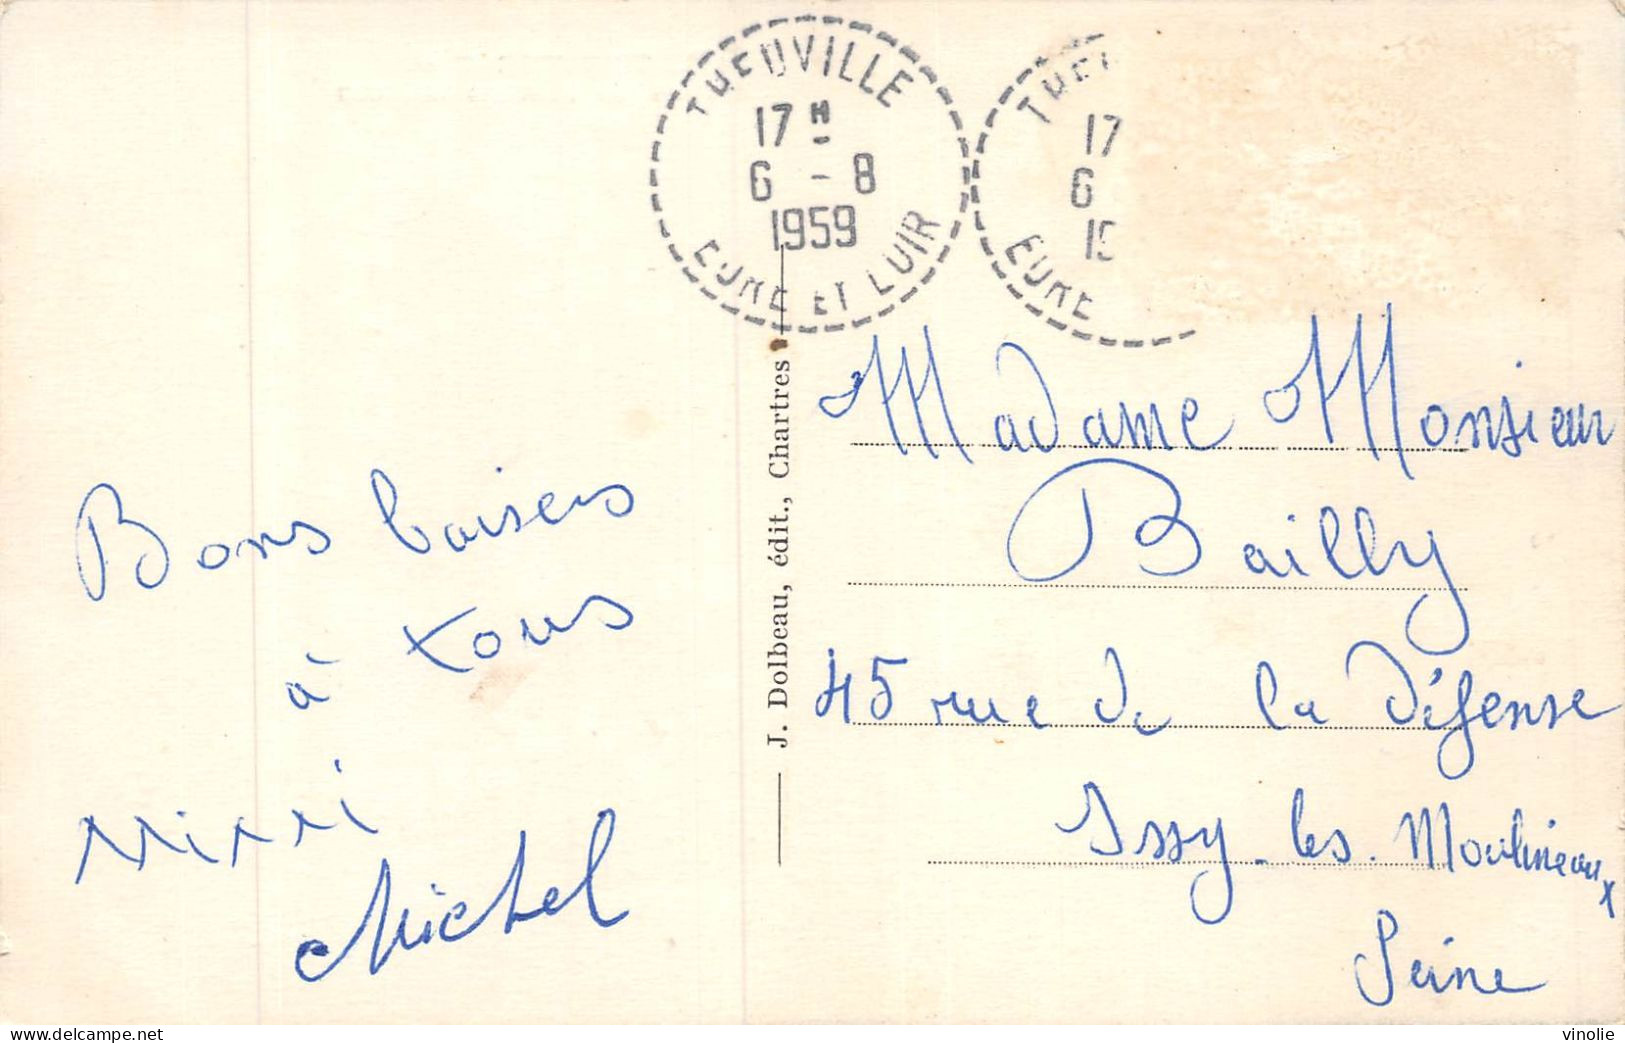 THEUVILLE
17 H
6 - 8
1959
EURE ET LOIR
THEU
17
6
19
EURE
Bons baisers
à tous
Mimi
Michel
J. Dolbeau, édit., Chartres
Madame Monsieur
Bailly
45 rue de la Défense
Issy-les-Moulineaux
Seine
delcampe.net
vinolie